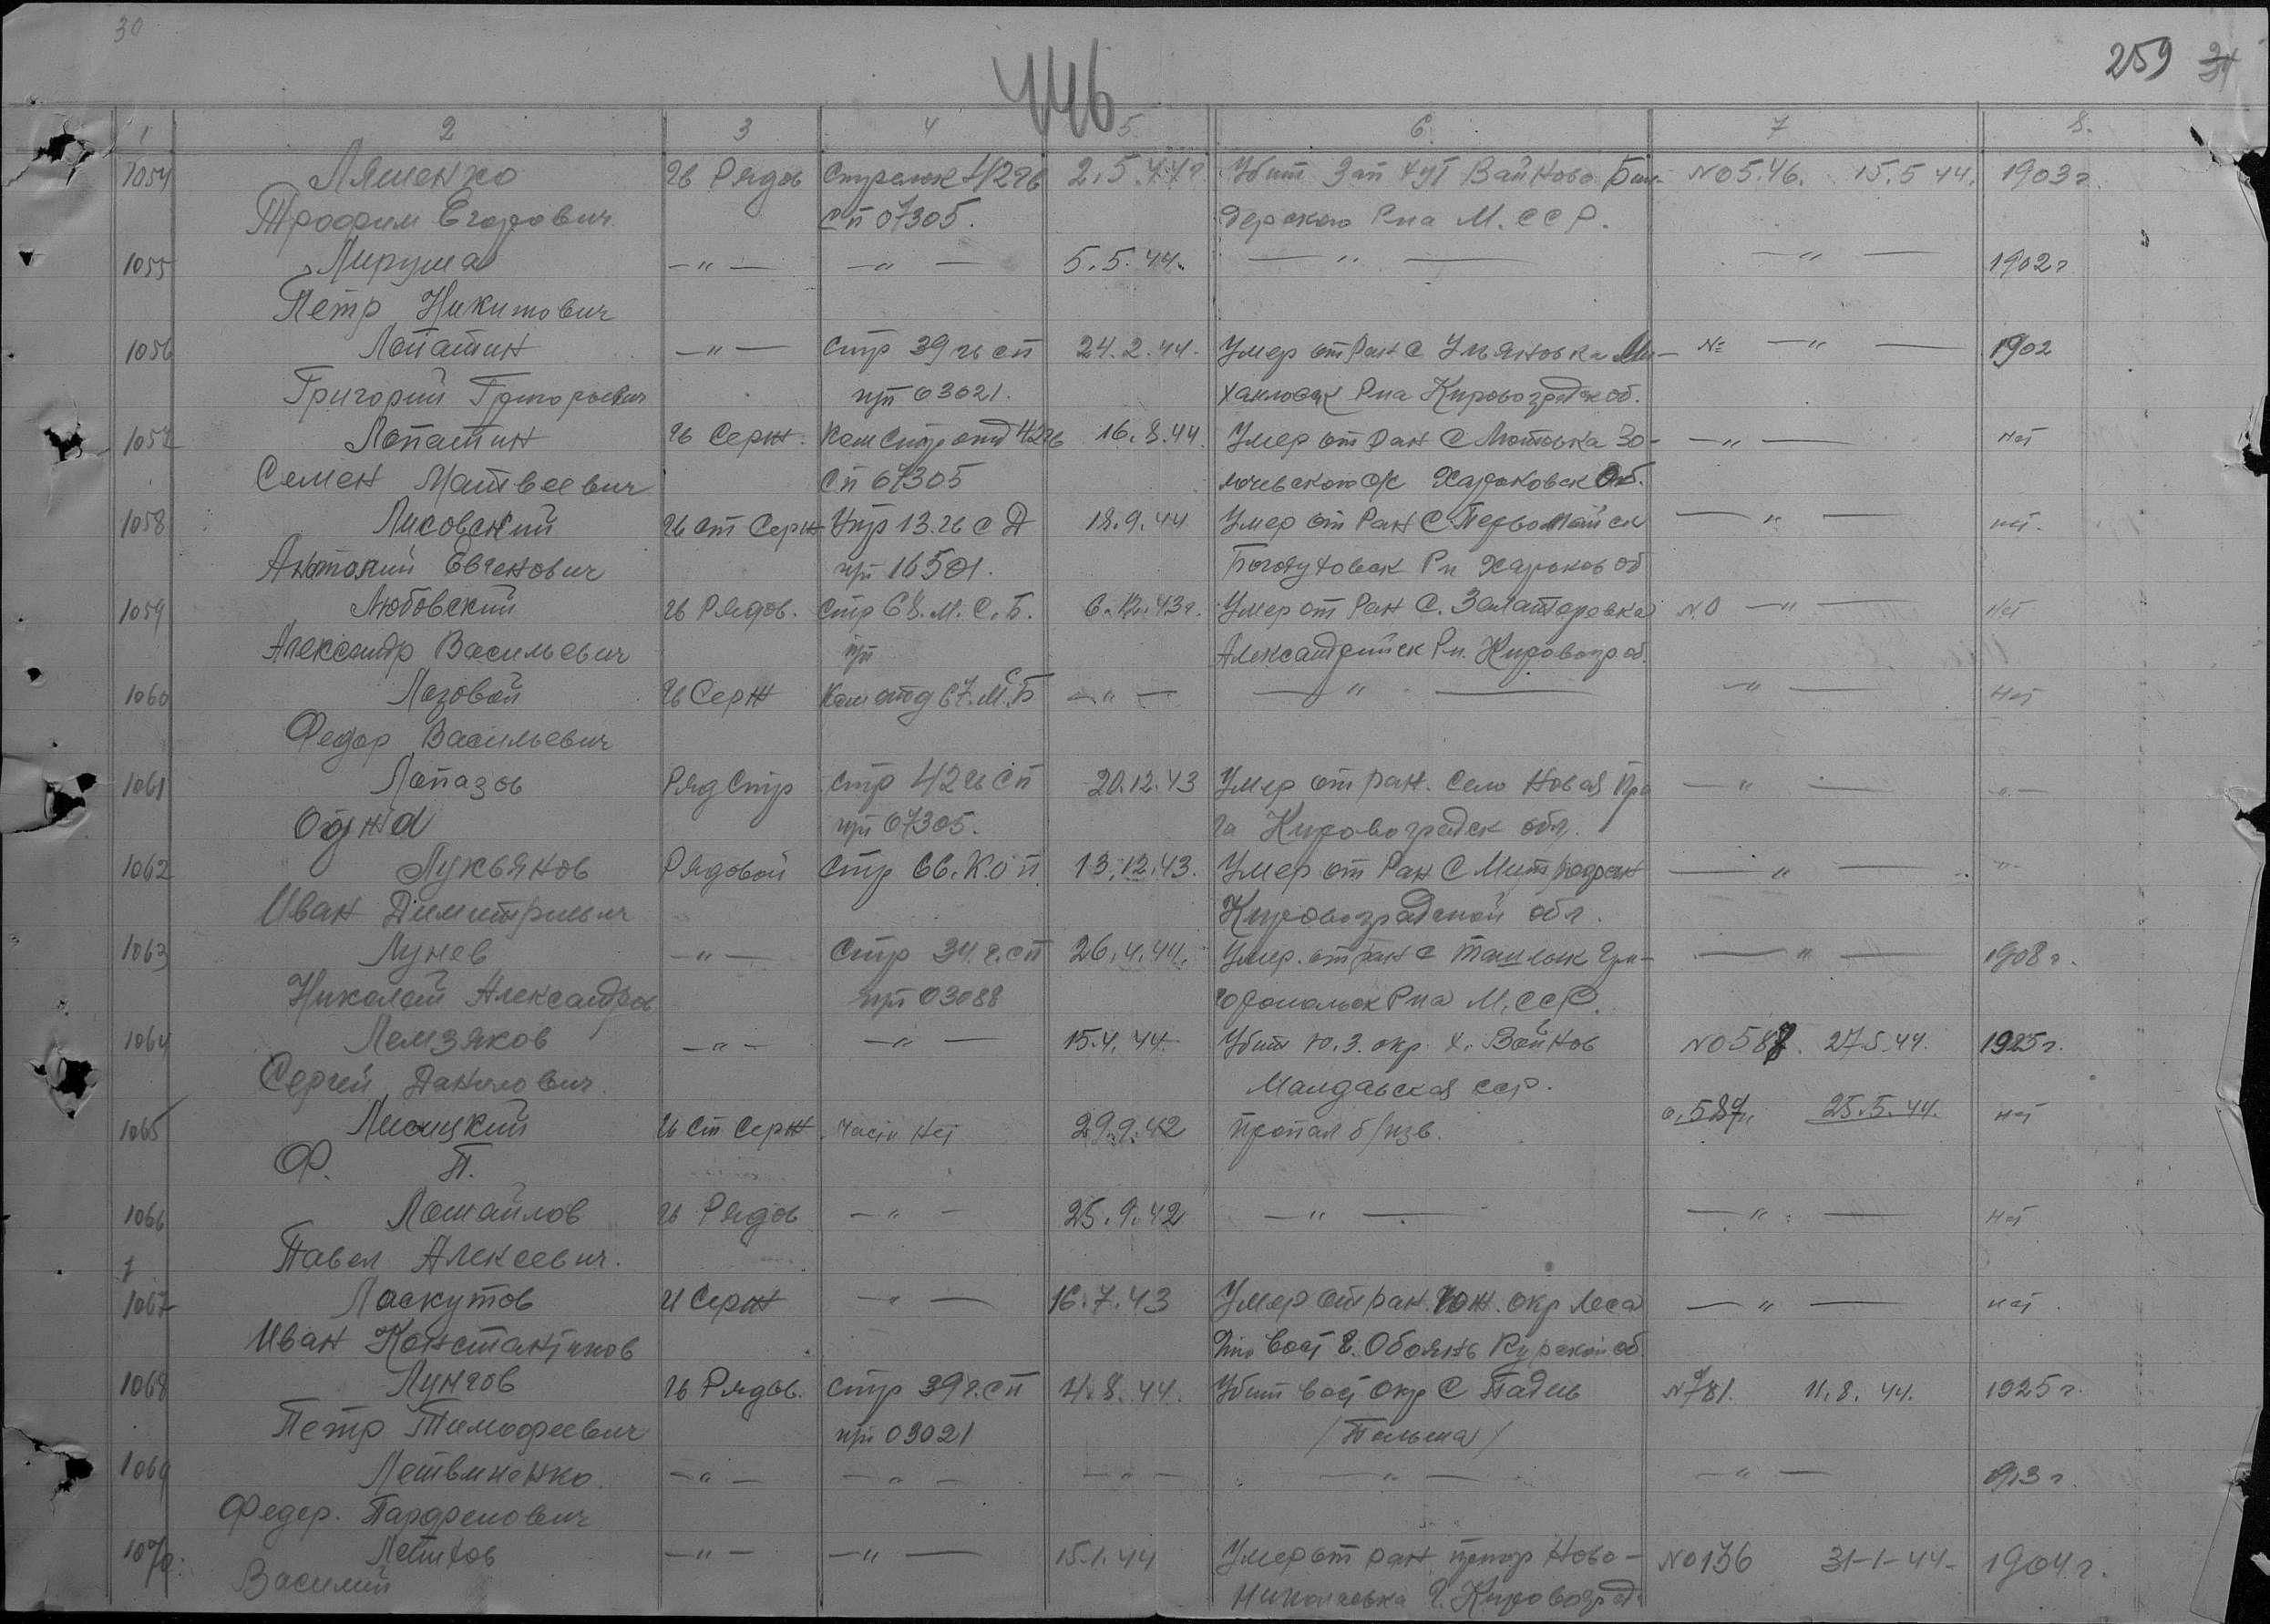 30
446
259 31
1 2 3 4 5 6 7 8.
1054 Ляшенко гв Рядов Стрелок 42 гв 2.5.44г Убит Зап хут Вайново Бен- № 546. 15.5 44. 1903г.
Трофим Егорович сп 07305. дерского Рна М.ССР.
1055 Лируша —"— —"— 5.5.44. —"— —"— 1902г
Петр Никитович
1056 Лопатин —"— стр 39 гв сп 24.2.44. Умер от Ран С Ульяновка Ми- № —"— 1902
Григорий Григорьевич пп 03021. хайловск Рна Кировоградск об.
1057 Лопатин гв Серж. Ком Стр отд 42 гв 16.8.44. Умер от ран С Лютовка Зо- —"— нет
Семен Матвеевич сп 07305 лочевского Харьковск Об.
1058 Лисовский гв ст Серж 13 гв с Д 18.9.44 Умер от Ран С Первомайск —"— нет.
Анатолий Евгенович пп 16501. Богодуховск Рн Харьков об
1059 Любовский гв Рядов. Стр 68. М.С.Б. 6.12.43г. Умер от Ран С. Залатаревка № —"— нет
Александр Васильевич пп Александрийск Рн. Кировогр об.
1060 Лазовой гв Серж Ком отд 67. М.С.Б —"— —"— —"— нет
Федор Васильевич
1061 Лапазов Ряд Стр стр 42 гв сп 20.12.43 Умер от ран. Село Новая Пра —"— —"—
пп 07305. га Кировоградск обл.
1062 Лукьянов Рядовой Стр 66. 13.12.43. Умер от Ран С Митрофан —"— "
Иван Димитриевич Кировоградской обл.
1063 Лунев —"— Стр 34 г.сп 26.4.44. Умер. от ран С Ташлык Гри- —"— 1908г.
Николай Александров пп 03088 горопольск Рна М.ССР.
1064 Лемзяков —"— —"— 15.4.44 Убит Ю.З. окр. х. Войнов № 587. 27.5.44. 1925г.
Сергей Данилович. Малдавская сср.
1065 Лисицкий гв Ст Серж части нет 29.9.42 пропал б/изв. 25.5.44. нет
Ф. П.
1066 Ломайлов гв Рядов —"— 25.9.42 —"— —"— нет
Павел Алексеевич.
1067 Ласкутов Серж —"— 16.7.43 Умер от ран. Юж. окр леса —"— нет.
Иван Константинов вост г. Обоянь Курской об.
1068 Лунгов гв Рядов. стр 39 г.сп 4.8.44. Убит вост окр С Падель №781. 11.8.44. 1925г.
Петр Тимофеевич пп 03021 /Польша/
1069 Летвиненко —"— —"— —"— —"— —"— 1913г.
Федер. Парфенович
1070. —"— —"— 15.1.44 Умер от ран Ново- № 136 31-1-44- 1904г.
Василий Николаевка г. Кировоград